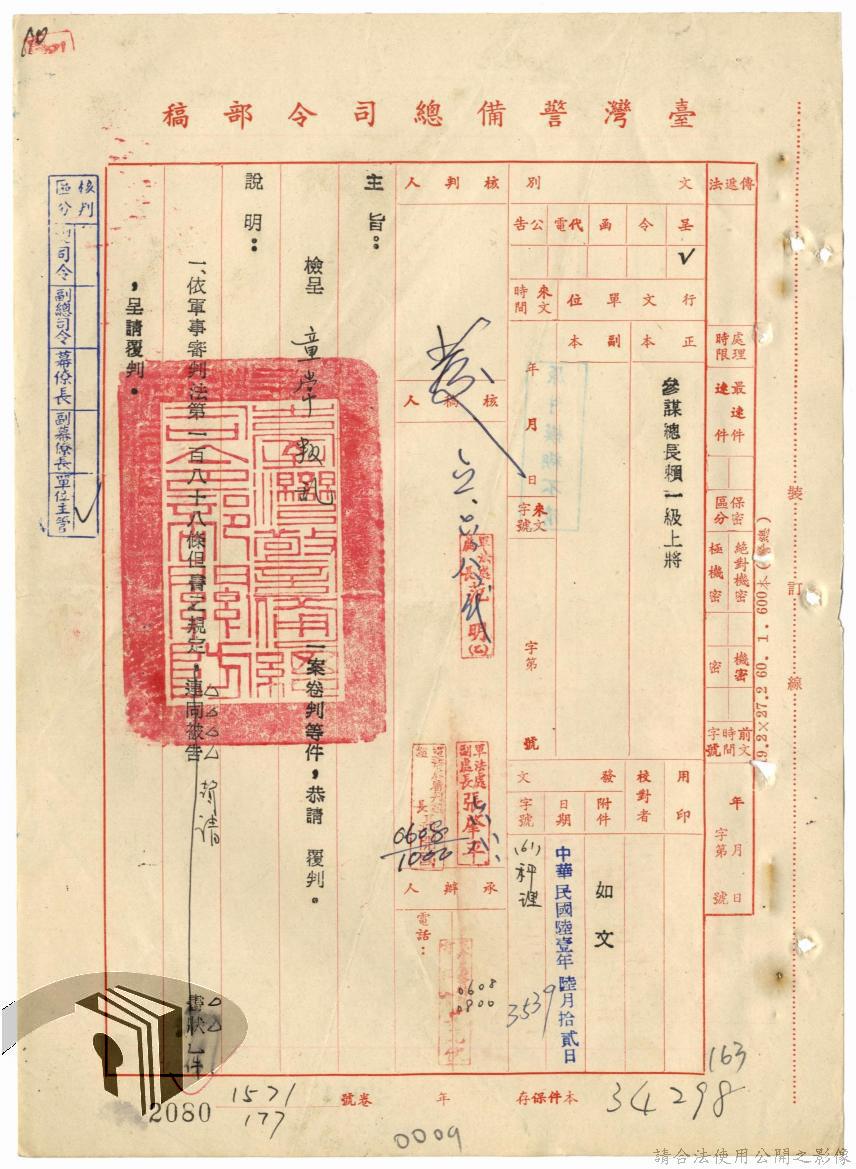 臺灣警備總司令部稿
傳遞法
處理時限
最速件
速件
保密區分
絕對機密
極機密
機密
密
前文時間字號
年月日
字第號
文別
呈
令
函
代電
公告
✓
行文單位
正本
副本
參謀總長賴一級上將
來文時間
年月日
來文字號
字第號
用印
校對者
發文
附件
如文
日期
中華民國陸壹年陸月拾貳日
字號
(61)秤理
3539
核判人
核稿人
軍法處副處長張
0608
1000
承辦人
電話:
0608
0800
主旨:
檢呈 童常叛亂 一案卷判等件,恭請 覆判。
說明:
一、依軍事審判法第一百八十八條但書之規定,連同被告 聲請 書狀 件
,呈請覆判。
核判區分
司令
副總司令
幕僚長
副幕僚長
單位主管
✓
裝訂線
19.2×27.2 60.1.600本(警總)
本件保存 年 卷 號
34298
163
1571
177
2080
0009
請合法使用公開之影像